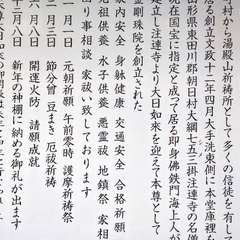 村から湯殿山祈祷所として多くの信徒を有して
居る創立文政十二年四月大本手洗東側に本堂庫裡を
山形県東田川郡朝日村大網七五三掛注連寺の名僧
現在国宝に指定と成って居る即身佛鉄門海上人が
是し注連寺より大日如来を迎えて本尊として
金剛珠院を創立された
家内安全 身躰健康 交通安全 合格祈願
先祖供養 水子供養 悪霊祓 地鎮祭 家相
り事相談 家祓い致しております
一月一日 元朝祈願 午前零時 護摩祈祷祭
二月三日 節分曾 豆まき 厄祓祈祷
三月八日 開運火防 請願成就
十二月八日 新年の神棚に納める御札が出ます